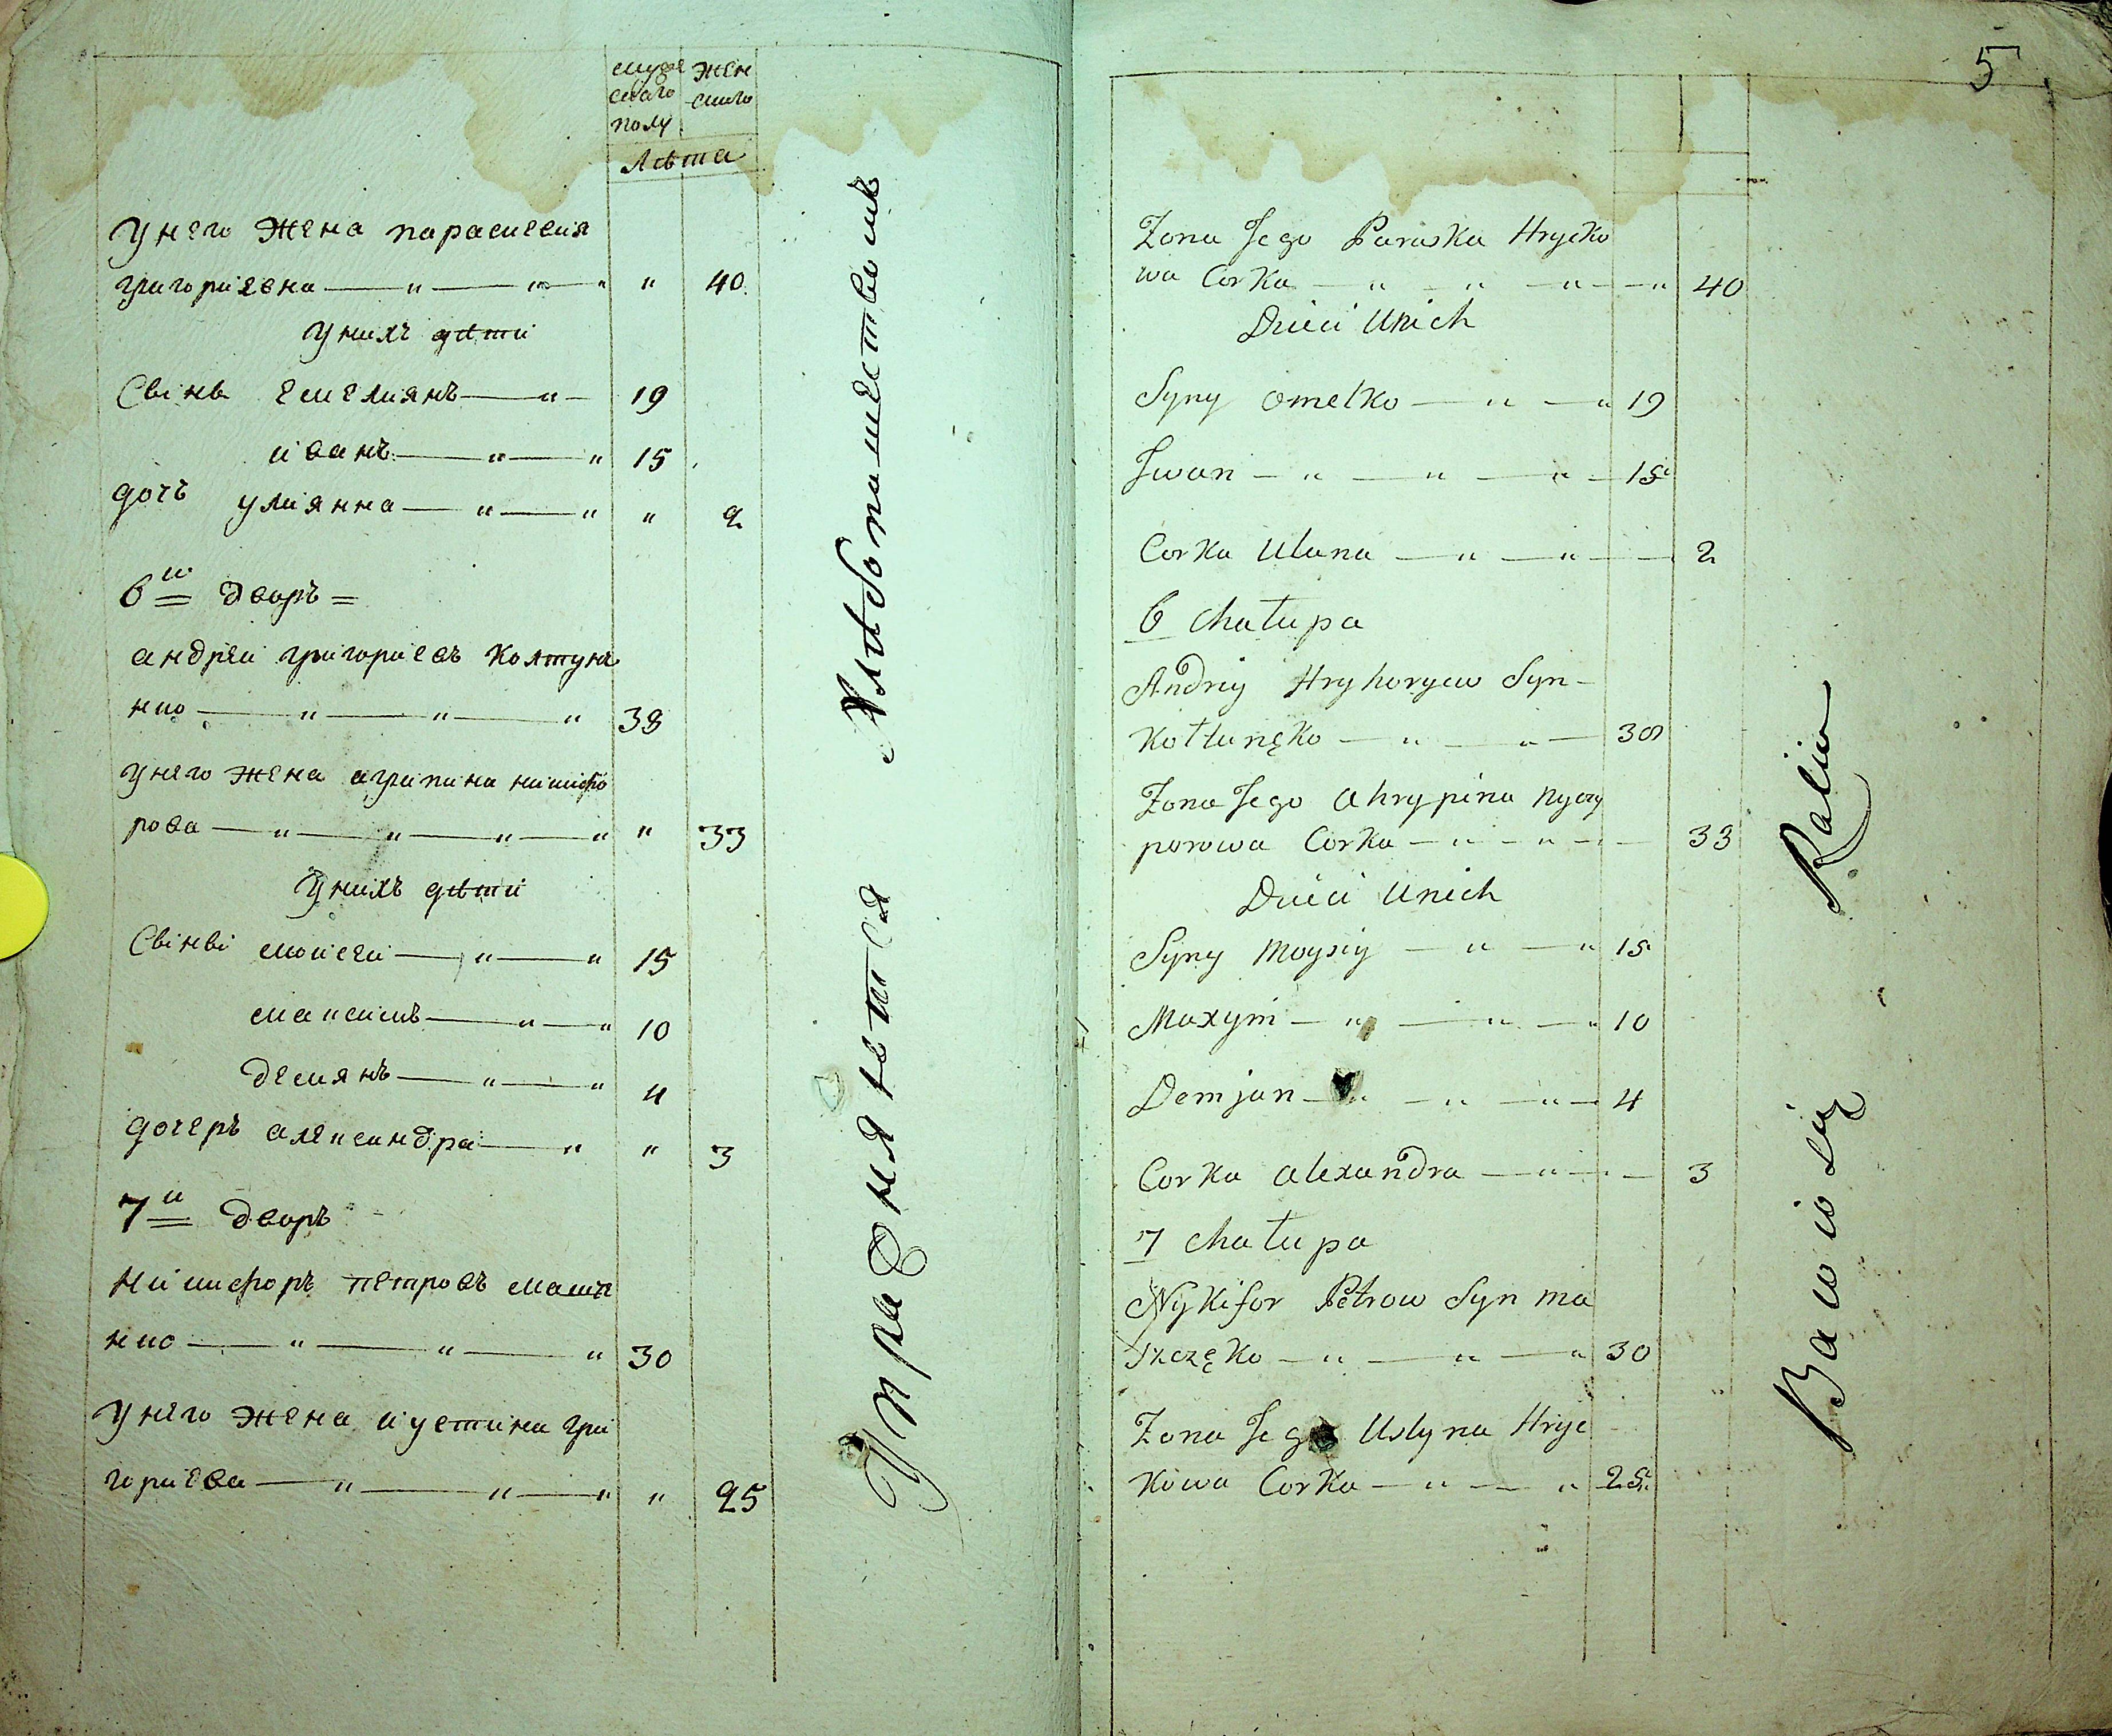 муже жен
скаго скаго
полу
лѣта
У него жена параскевия
григориевна — " — " — " " 40
У нихъ дѣти
Сыны Емелиянъ — " — 19
иванъ — " — " 15
дочь улиянна — " — " " 2
6й дворъ =
андрей григориевъ Колтуне
нко — " — " — " 38
У него жена агрипина никифо
рова — " — " — " — " " 33
У нихъ дѣти
Сыны мойсей — " — " 15
максимъ — " — " 10
демянъ — " — " 4
дочеръ александра — " " 3
7й дворъ
Никифоръ петровъ маще
нко — " — " — " 30
У него жена иустина гри
гориева — " — " — " " 25
Упражняются Хлебопашествомъ
5
Zona Jego Paraska Hrycko
wa Corka — " — " — " — " 40
Dzieci Unich
Syny Omelko — " — " 19
Jwan — " — " — " — 15
Corka Ulana — " — " — 2
6 Chałupa
Andriy Hryhoryew Syn -
Kołtunęko — " — " — 38
Zona Jego Ahrypina Nyczy
porowa Corka — " — " — 33
Dzieci Unich
Syny Moysiy — " — " 15
Maxym — " — " — " 10
Demjan — " — " — " — 4
Corka Alexandra — " — 3
7 Chałupa
Nykifor Petrow Syn Ma
szczęko — " — " — " 30
Zona Jego Ustyna Hryc
kowa Corka — " — " 25
Bawio się Rolio